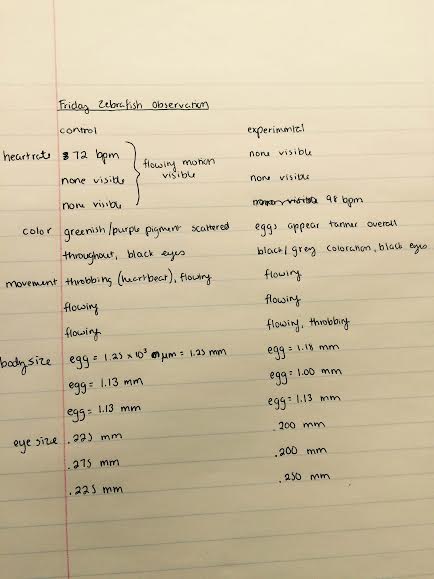 Friday Zebrafish Observation
control experimental
heartrate 72 bpm none visible
none visible flowing motion visible none visible
none visible 98 bpm
color greenish/purple pigment scattered eggs appear tanner overall
throughout, black eyes black/grey coloration, black eyes
movement throbbing (heartbeat), flowing flowing
flowing flowing
flowing flowing, throbbing
body size egg = 1.25 x 10³ µm = 1.25 mm egg = 1.18 mm
egg = 1.13 mm egg = 1.00 mm
egg = 1.13 mm egg = 1.13 mm
eye size .225 mm .200 mm
.275 mm .200 mm
.225 mm .250 mm